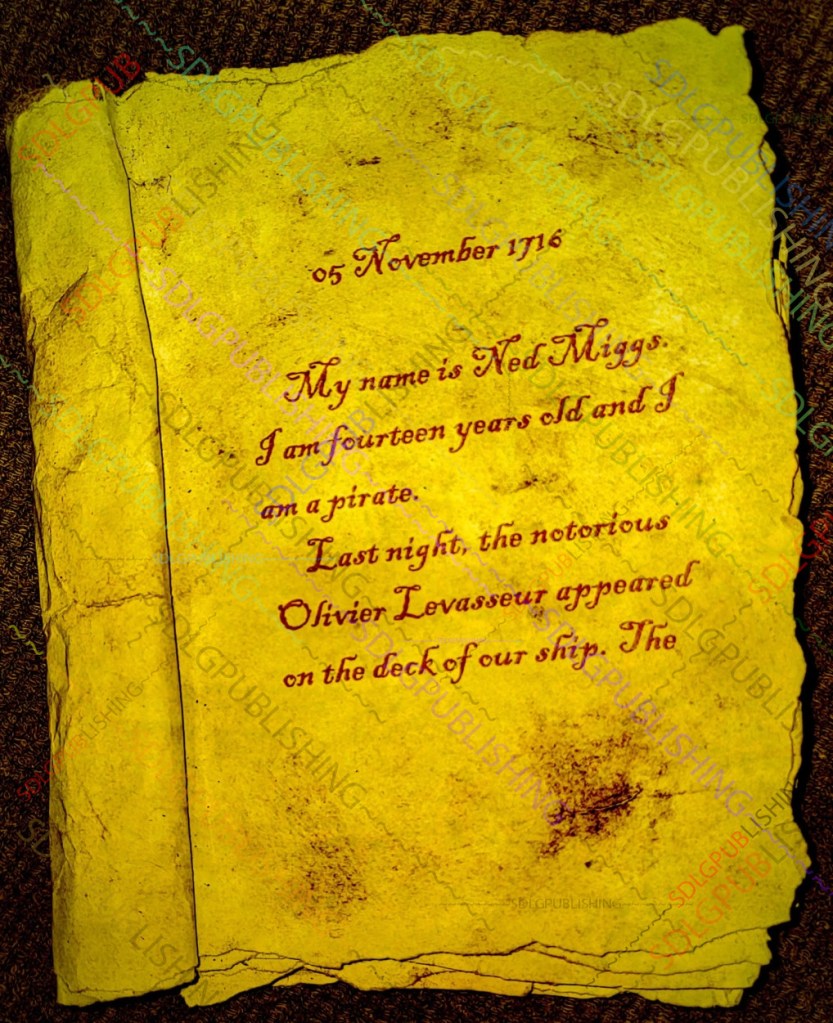 05 November 1716
My name is Ned Miggs.
I am fourteen years old and I
am a pirate.
Last night, the notorious
Olivier Levasseur appeared
on the deck of our ship. The
SDLGPUBLISHING